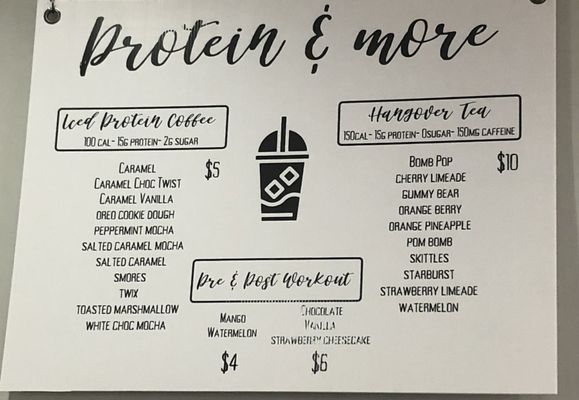 Protein & more
Iced Protein Coffee
100 CAL- 15G PROTEIN- 2G SUGAR
$5
CARAMEL
CARAMEL CHOC TWIST
CARAMEL VANILLA
OREO COOKIE DOUGH
PEPPERMINT MOCHA
SALTED CARAMEL MOCHA
SALTED CARAMEL
SMORES
TWIX
TOASTED MARSHMALLOW
WHITE CHOC MOCHA
Hangover Tea
150CAL- 15G PROTEIN- 0SUGAR- 150MG CAFFEINE
$10
BOMB POP
CHERRY LIMEADE
GUMMY BEAR
ORANGE BERRY
ORANGE PINEAPPLE
POM BOMB
SKITTLES
STARBURST
STRAWBERRY LIMEADE
WATERMELON
Pre & Post Workout
MANGO
WATERMELON
$4
CHOCOLATE
VANILLA
STRAWBERRY CHEESECAKE
$6